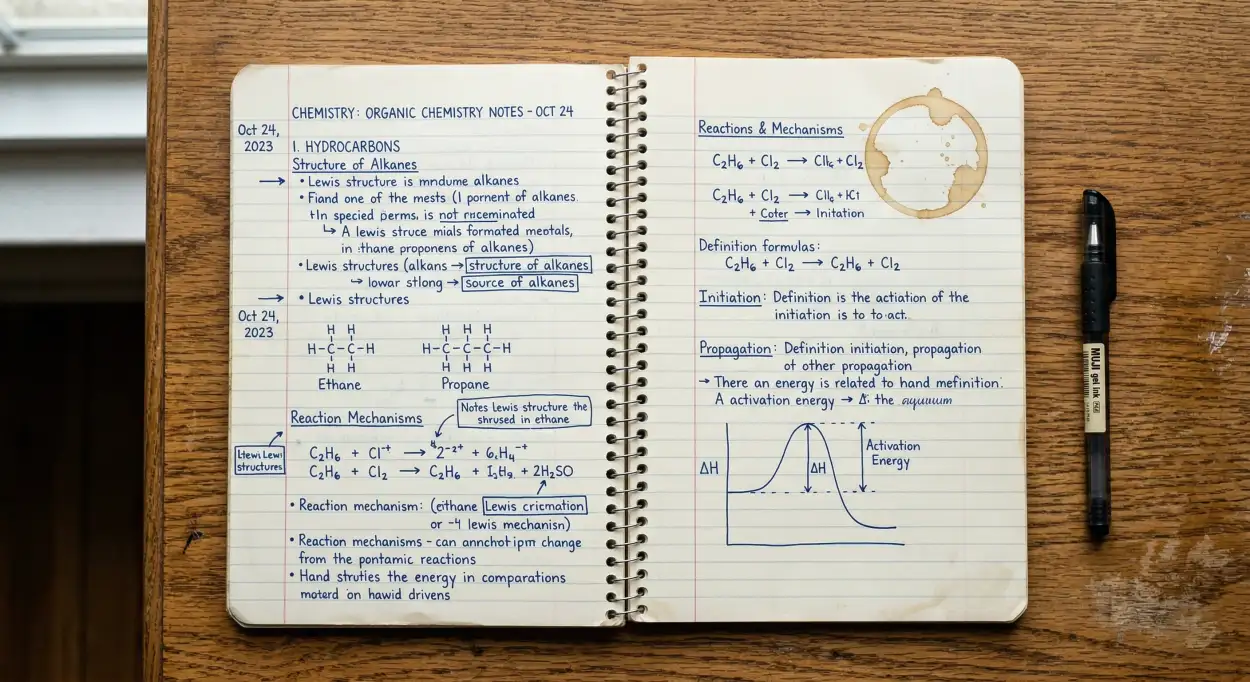 CHEMISTRY: ORGANIC CHEMISTRY NOTES - OCT 24
Oct 24,
2023
I. HYDROCARBONS
Structure of Alkanes
→ • Lewis structure is mndume alkanes
• Fiand one of the mests (I pornent of alkanes.
In specied perms, is not riceminated
↳ A lewis struce mials formated meotals,
in thane proponens of alkanes)
• Lewis structures (alkans → structure of alkanes
↳ lowar stlong → source of alkanes
→ • Lewis structures
Oct 24,
2023
H H
H-C-C-H
H H
Ethane
H H H
H-C-C-C-H
H H H
Propane
Reaction Mechanisms
Notes Lewis structure the
shrused in ethane
Lewi
structures
C₂H₆ + Cl →
C₂H₆ + Cl₂ → C₂H₆ + + 2H₂SO
• Reaction mechanism: (eithane Lewis cricmation
or -4 lewis mechanisn)
• Reaction mechanisms - can change
from the pontamic reactions
• Hand struties the energy in comparations
moterd on hawid drivens
Reactions & Mechanisms
C₂H₆ + Cl₂ → + Cl₂
C₂H₆ + Cl₂ →
+ Coter → Initation
Definition formulas:
C₂H₆ + Cl₂ → C₂H₆ + Cl₂
Initiation: Definition is the actiation of the
initiation is to to act.
Propagation: Definition initiation, propagation
of other propagation
→ There an energy is related to hand mefinition.
A activation energy → Δ: the
ΔH
ΔH
Activation
Energy
MUJI gel ink